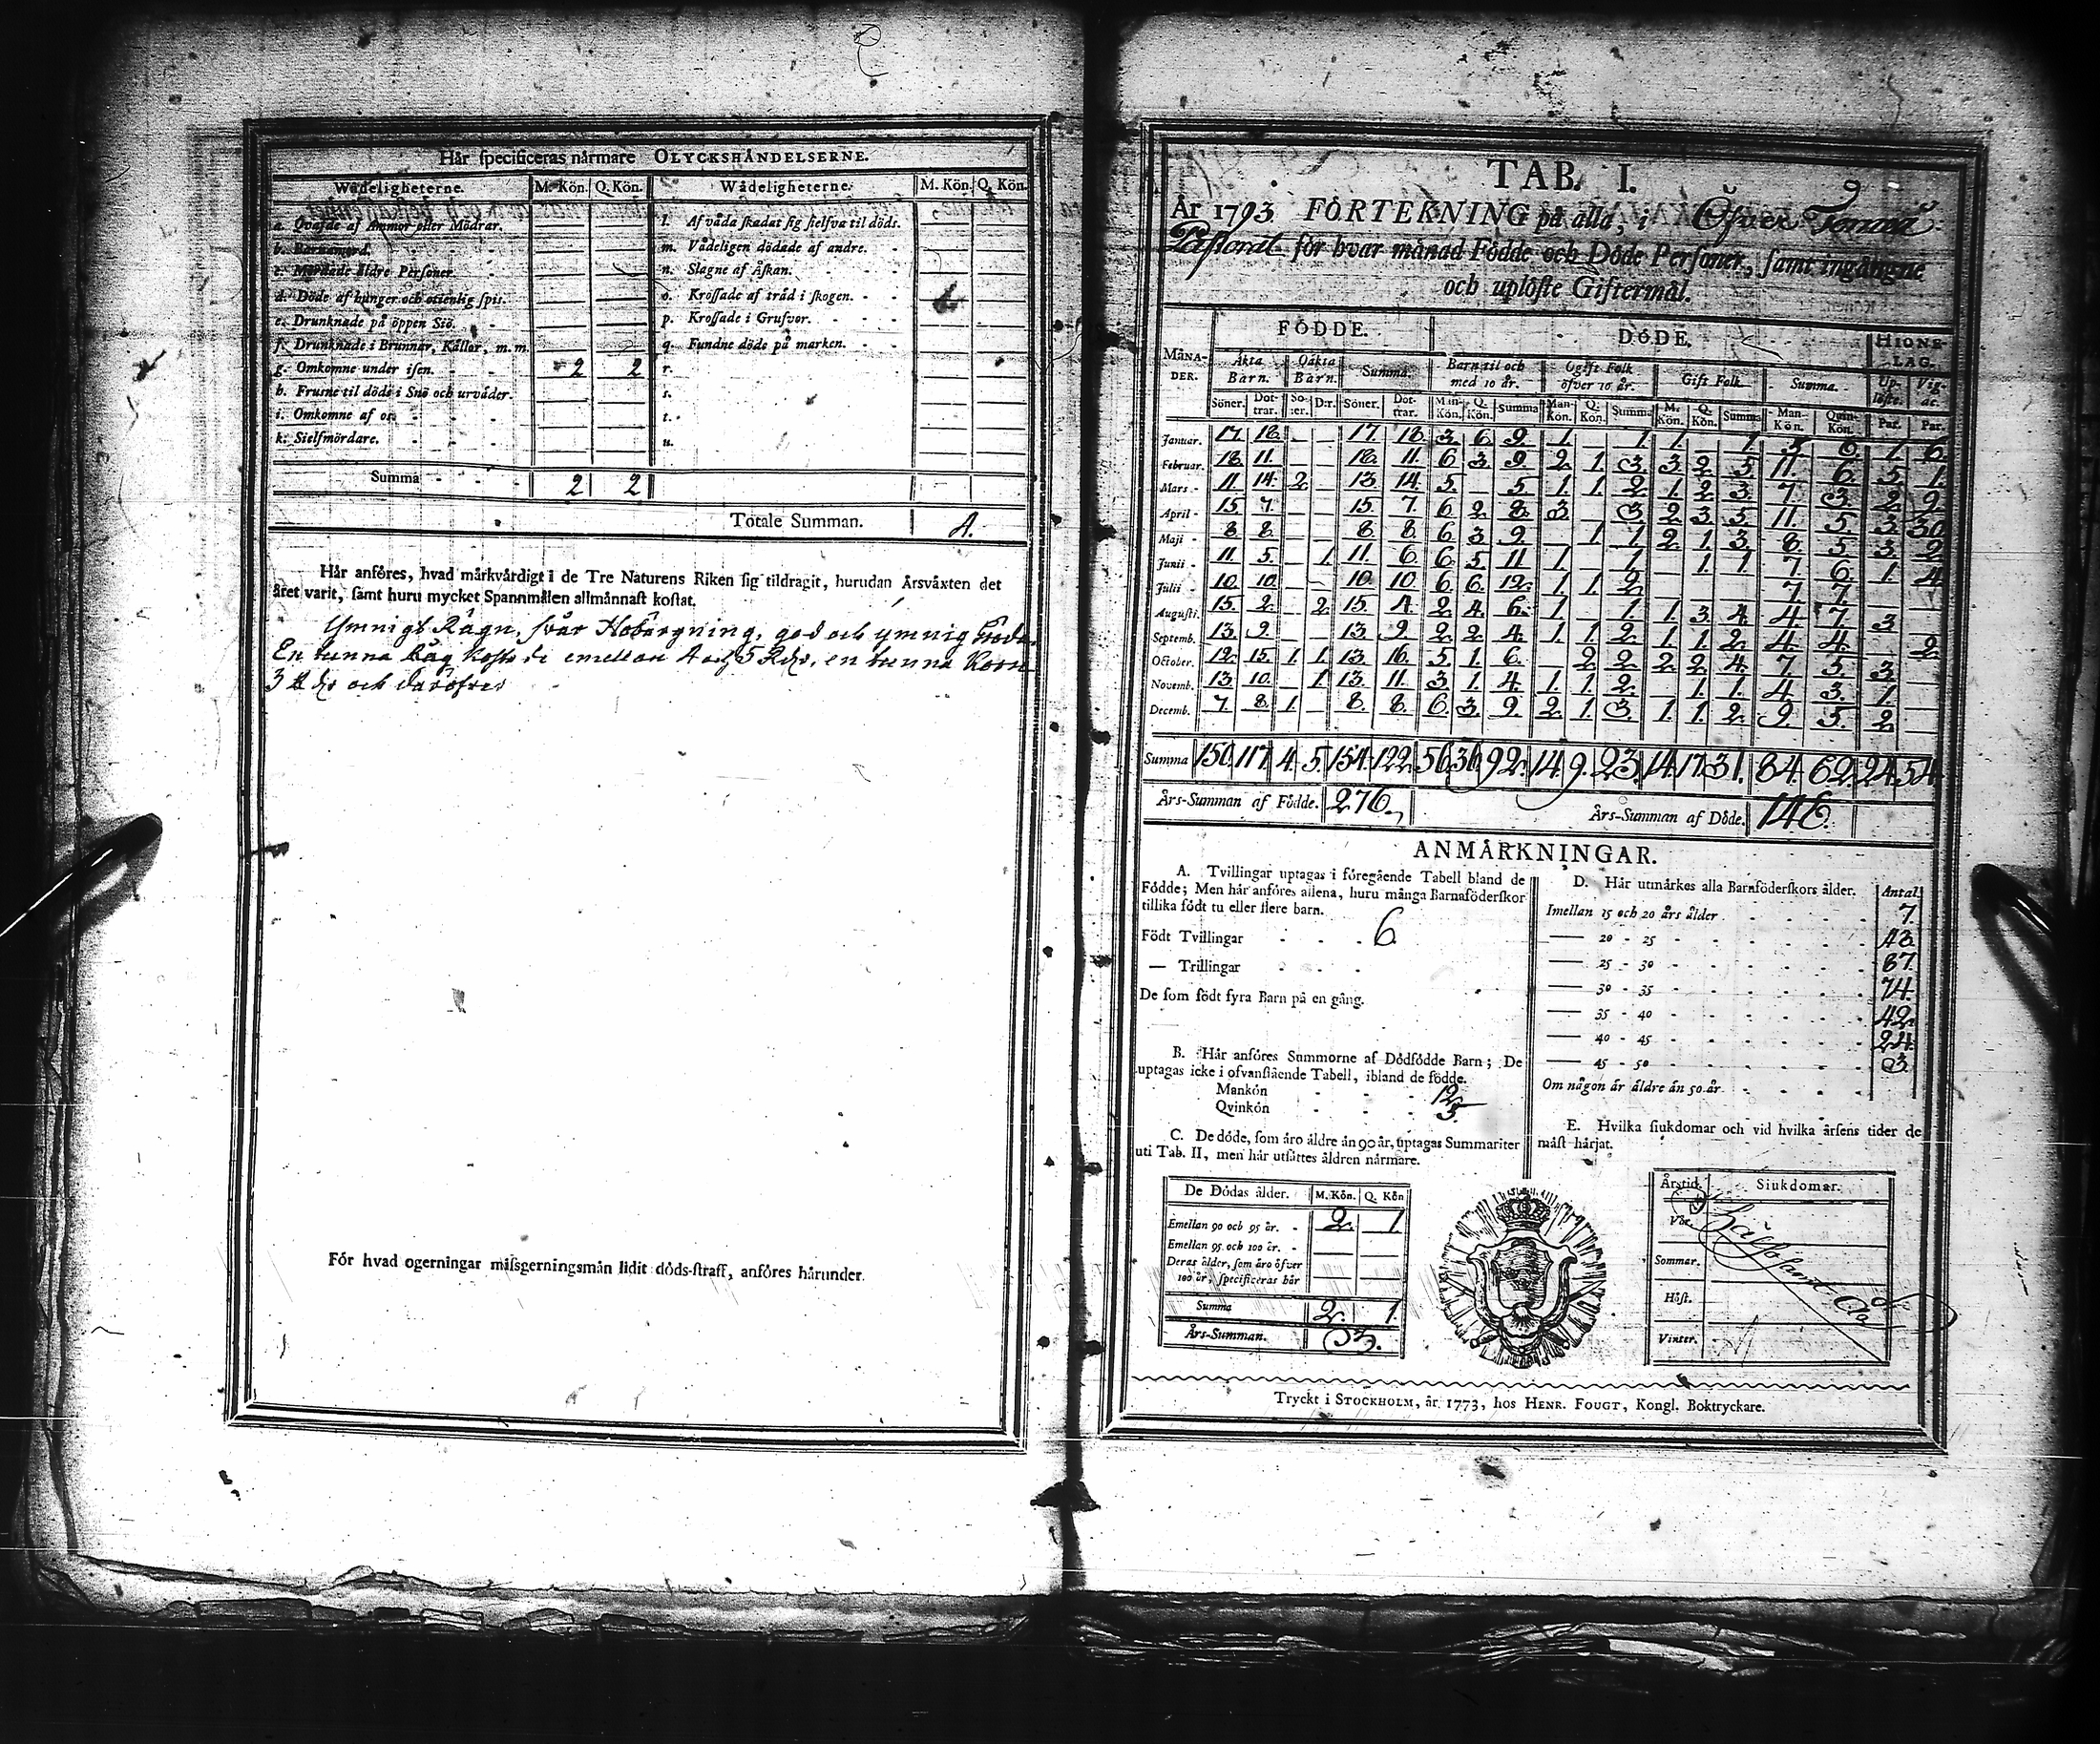 Hår specificeras nårmare OLYCKSHÅNDELSERNE.
Wådeligheterne. M. Kön. Q. Kön. Wådeligheterne. M. Kön. Q. Kön.
a. Qvafde af Ammor eller Mödrar. l. Af våda skadat sig sielfva til döds.
b. Barnamord. m. Vådeligen dödade af andre.
c. Mördade äldre Personer. n. Slagne af Åskan.
d. Döde af hunger och otienlig spis. o. Krossade af träd i skogen.
e. Drunknade på öppen Siö. p. Krossade i Grufvor.
f. Drunknade i Brunnar, Källor, m. m. q. Fundne döde på marken.
g. Omkomne under isen. 2 2 r.
h. Frusne til döds i Snö och urväder. s.
i. Omkomne af os. t.
k. Sielfmördare. u.
Summa 2 2
Totale Summan. 4.
Hår anfóres, hvad mårkvårdigt i de Tre Naturens Riken sig tildragit, hurudan Årsvåxten det
året varit, samt huru mycket Spannmålen allmånnast kostat.
Ymnigt Rägn, svår Höbergning, god och ymnig Gröda.
En tunna Råg kostade emellan 4 och 5 Rdr, en tunna Korn
3 Rdr och daröfver
Fór hvad ogerningar missgerningsmån lidit dóds-straff, anfóres hårunder.
TAB. I.
År 1793 FÓRTEKNING på alla, i Öfver Torneå
Pastorat för hvar månad Födde och Döde Personer, samt ingångne
och uplöste Giftermål.
FÖDDE. DÖDE. HIONELAG.
MÅNADER. Äkta Barn. Oäkta Barn. Summa. Barn til och med 10 år. Ogift Folk öfver 10 år. Gift Folk. Summa. Uplöste. Vigde.
Söner. Dottrar. Söner. D:r. Söner. Dottrar. Man-Kön. Q. Kön. Summa Man-Kön. Q. Kön. Summa M. Kön. Q. Kön. Summa Man-Kön. Quin-Kön. Par. Par.
Januar. 17. 18. – – 17. 18. 3 6 9. 1. – 1 1. – 1 5 6. 1. 6.
Februar. 18. 11. – – 18. 11. 6 3. 9. 2. 1. 3. 3. 2. 5 11. 6. 5. 1.
Mars 11. 14. 2. – 13. 14. 5. – 5. 1. 1. 2. 1. 2. 3. 7. 3. 2. 9.
April 15. 7. – – 15. 7. 6 2. 8. 3. – 3. 2. 3. 5. 11. 5. 3. 30.
Maji 8 8. – – 8. 8. 6 3. 9. – 1 1 2. 1. 3. 8. 5. 3. 2.
Junii 11. 5. – 1. 11. 6 6. 5. 11 1. – 1. – 1. 1. 7. 6. 1. 4.
Julii 10. 10. – – 10. 10. 6 6. 12. 1. 1. 2. – – – 7. 7. – –
Augusti. 15. 2. – 2. 15. 4. 2. 4. 6. 1. – 1. 1. 3. 4. 4. 7. 3. –
Septemb. 13. 9. – – 13. 9. 2. 2. 4. 1. 1. 2. 1. 1. 2. 4. 4. – 2.
October. 12. 15. 1. 1. 13. 16. 5. 1. 6. – 2. 2. 2. 2. 4. 7. 5. 3. –
Novemb. 13. 10. – 1. 13. 11. 3. 1. 4. 1. 1. 2. – 1. 1. 4. 3. 1. –
Decemb. 7. 8. 1. – 8. 8. 6. 3. 9. 2. 1. 3. 1. 1. 2. 9. 5. 2. –
Summa 150. 117. 4. 5. 154. 122. 56. 36. 92. 14. 9. 23. 14. 17. 31. 84. 62. 24. 54.
Års-Summan af Födde. 276. Års-Summan af Döde. 146.
ANMÅRKNINGAR.
A. Tvillingar uptagas i fóregående Tabell bland de
Fódde; Men hår anfóres allena, huru många Barnafóderskor
tillika fódt tu eller flere barn.
Fódt Tvillingar 6.
— Trillingar
De som fódt fyra Barn på en gång.
B. Hår anfóres Summorne af Dódfódde Barn; De
uptagas icke i ofvanstående Tabell, ibland de fódde.
Mankón 12.
Qvinkón 3.
C. De dóde, som åro åldre ån 90 år, uptagas Summariter
uti Tab. II, men hår utsåttes åldren nårmare.
De Dódas ålder. M. Kón. Q. Kón
Emellan 90 och 95 år. 2. 1
Emellan 95 och 100 år.
Deras ålder, som åro öfver
100 år, specificeras hår
Summa 2. 1.
Års-Summan. 3.
D. Hår utmårkes alla Barnföderskors ålder. Antal
Imellan 15 och 20 års ålder 7.
— 20 - 25 43.
— 25 - 30 87.
— 30 - 35 74.
— 35 - 40 42.
— 40 - 45 24.
— 45 - 50 3.
Om någon är äldre än 50 år
E. Hvilka siukdomar och vid hvilka årsens tider de
måst hårjat.
Årstid. Siukdomar.
Vår.
Sommar.
Håst.
Vinter.
Tryckt i STOCKHOLM, år 1773, hos HENR. FOUGT, Kongl. Boktryckare.